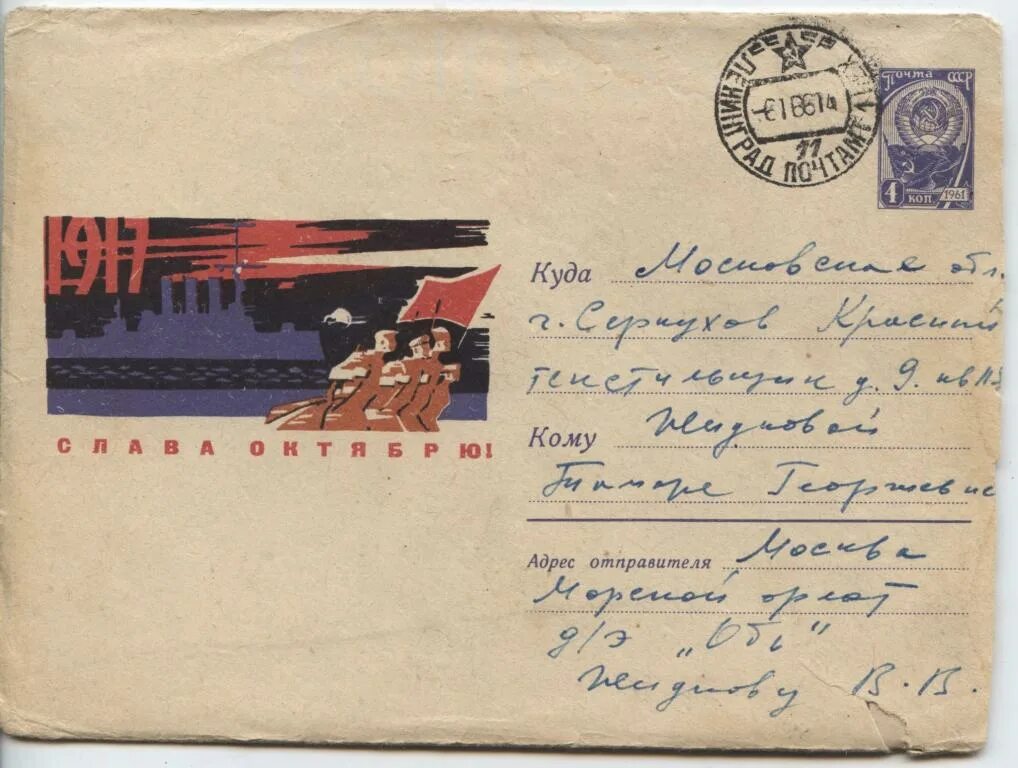 ЛЕНИНГРАД ПОЧТАМТ
11
Почта СССР
4 коп 1961
1917
СЛАВА ОКТЯБРЮ!
Куда Московская обл.
г. Серпухов Красный
текстильщик д. 9. кв
Кому Жидковой
Тамаре Георгиевне
Адрес отправителя Москва
Морской флот
д/э "Обь"
Жидкову В. В.